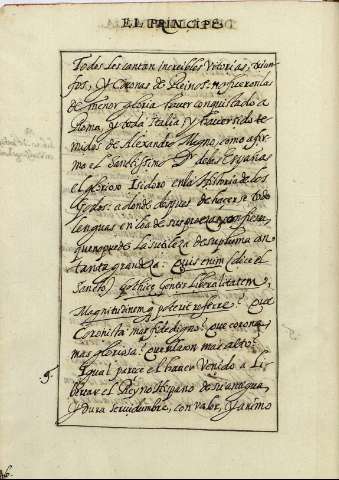 EL PRINCIPE
Todos les cantan increibles Vitorias, triun
fos, Y Coronas de Reinos. no fueron las
de menor gloria haver conquistado à
Roma, y toda Italia, y haver sido te
midos de Alexandro Magno, como afir
mo el Santissimo Dr de las Españas
el glorioso Isidoro en la Historia de los
Godos: adonde despues de hacerse todo
lenguas en loa de sus proezas, confiesa
que no puede la sutileza de su pluma con
tanta grandeza: Quis enim (dice el
Sancto) gothicæ Gentis liberalitatem,
Magnitudinem q poterit referre? Que
Coronista mas fidedigno? que corona
mas gloriosa? que mas alto?
9. Igual parece el haver Venido a Li
brar el Reyno Hispano de su antigua,
Y dura servidumbre, con valor, Y animo